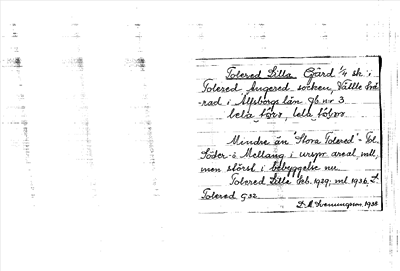 Tolered Lilla Gård 1/4 sk. i
Tolered Angered socken, Vättle hä-
rad i Älfsborgs län. Gb. nr 3
lela
Mindre än "Stora Tolered" - Tol.
Söder- o Mellang. i urspr. areal, mtl,
men störst i bebyggelse nu.
Tolered Lilla Geb. 1929; ml 1936. L.
Tolered G32.
1938